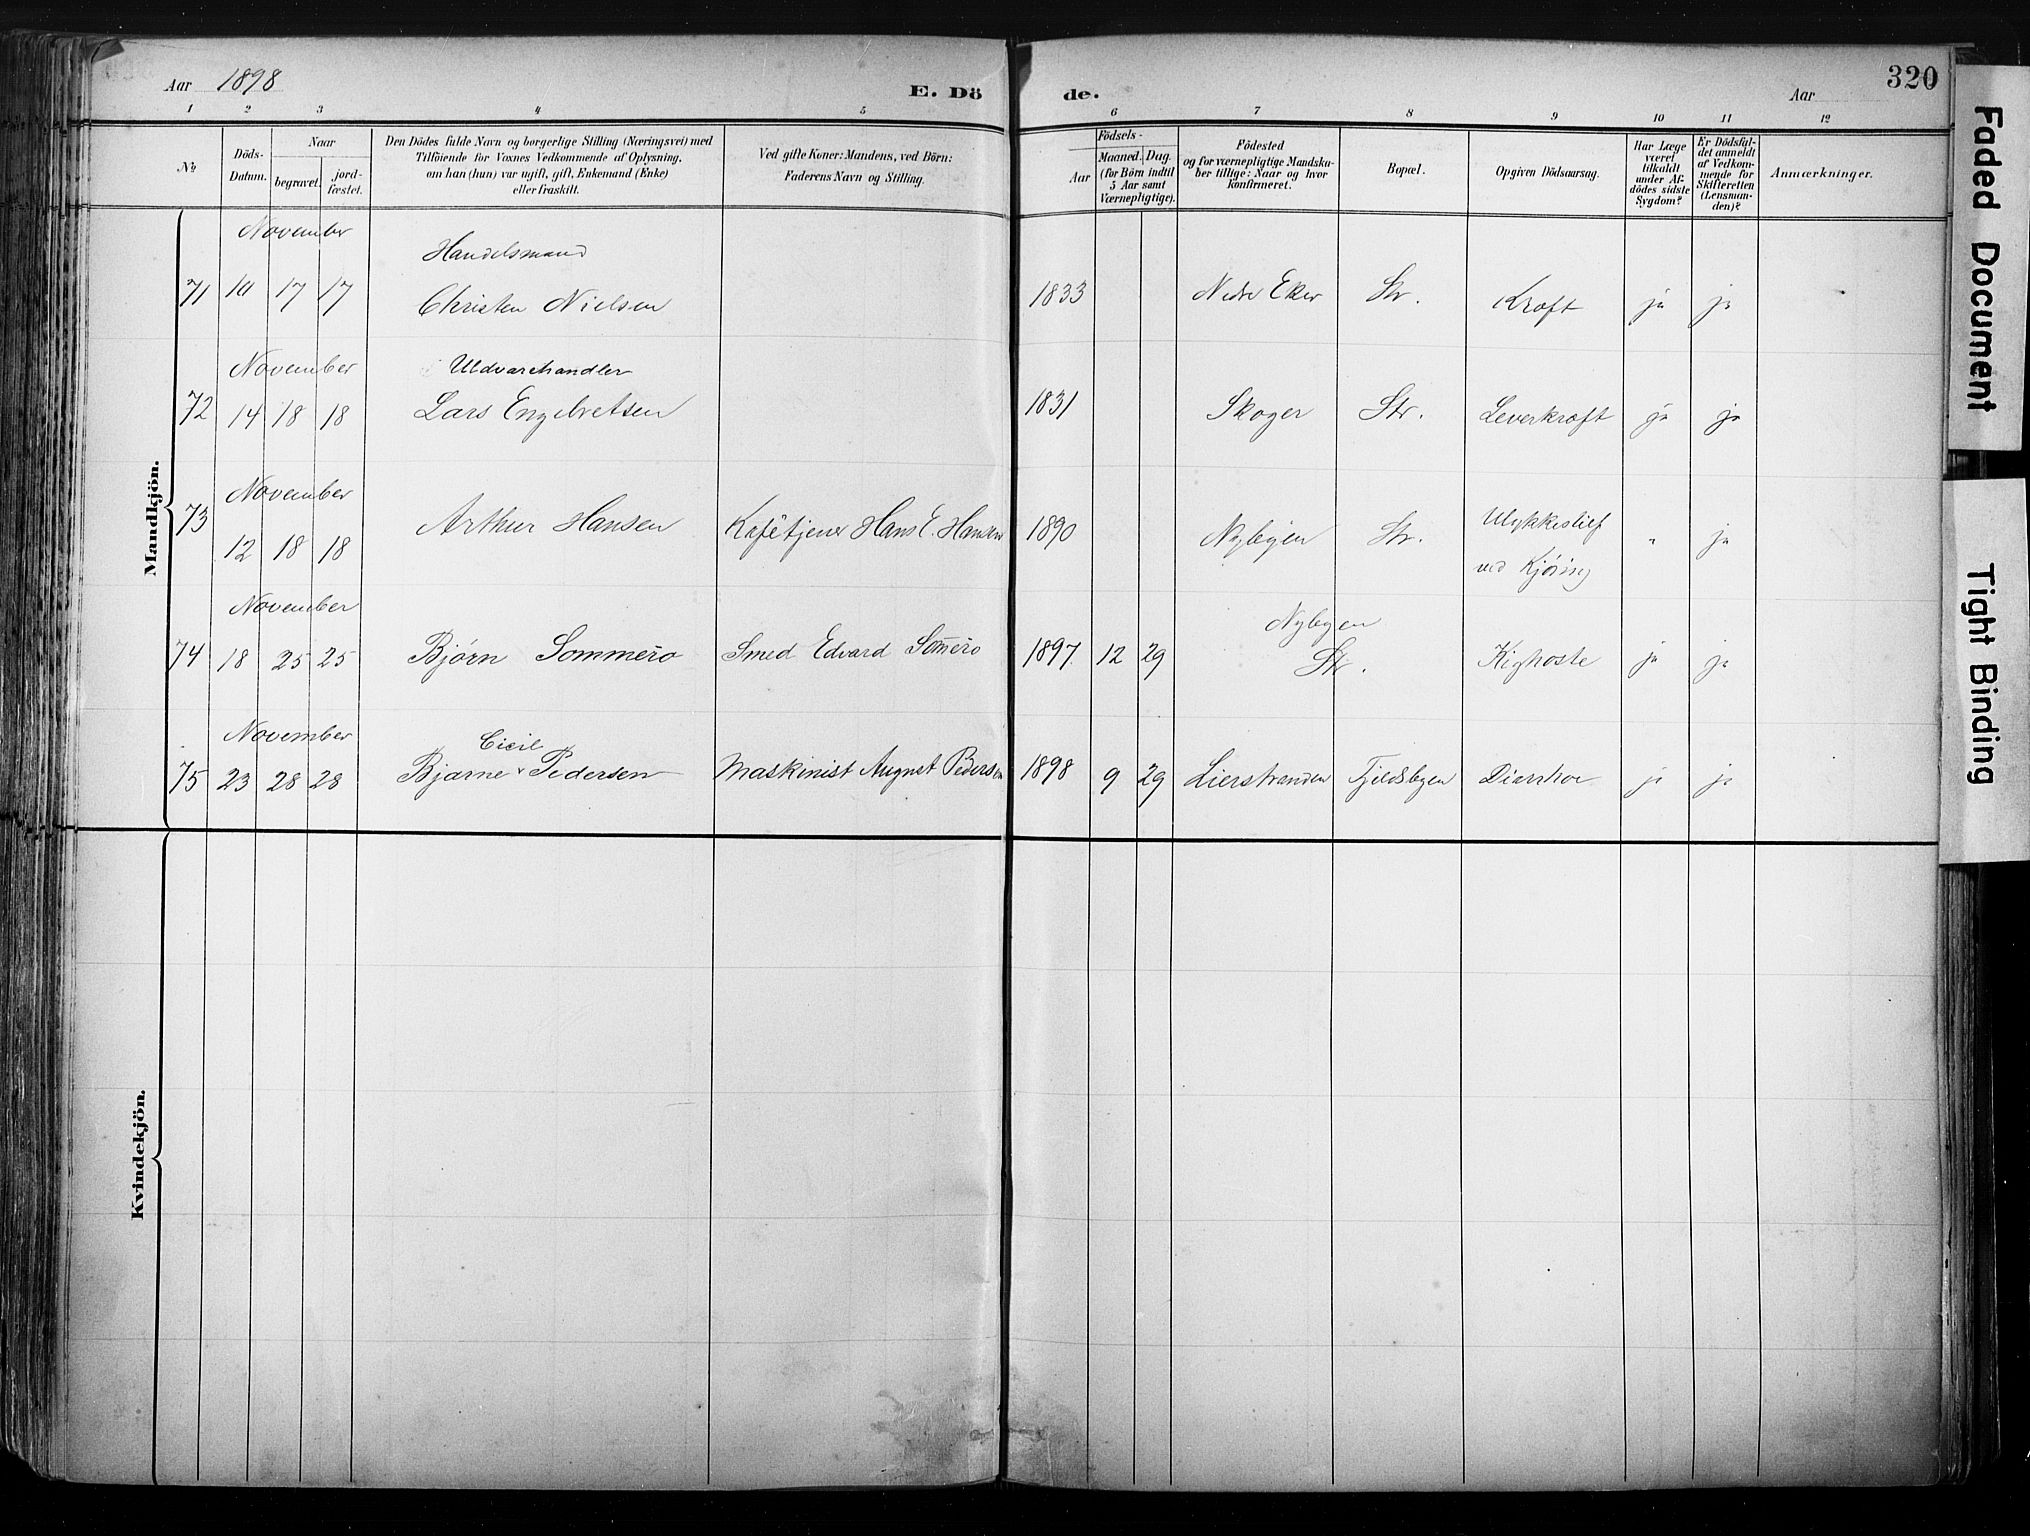 Aar 1898
E. Dö
de.
Aar
320
1 2 3 4 5 6 7 8 9 10 11 12
No
Döds-Datum.
Naar
begravet.
jord-fæstet.
Den Dödes fulde Navn og borgerlige Stilling (Næringsvei) med
Tilföiende for Voxnes Vedkommende af Oplysning,
om han (hun) var ugift, gift, Enkemand (Enke)
eller fraskilt.
Ved gifte Koner: Mandens, ved Börn:
Faderens Navn og Stilling.
Födsels-
Aar
Maaned. Dag.
(for Börn indtil
5 Aar samt
Værnepligtige).
Födested
og for værnepligtige Mandska-
ber tillige: Naar og hvor
konfirmeret.
Bopæl.
Opgiven Dödsaarsag.
Har Læge
været
tilkaldt
under Af-
dödes sidste
Sygdom?
Er Dödsfal-
det anmeldt
af Vedkom-
mende for
Skifteretten
(Lensman-
den)?
Anmærkninger.
Mandkjön.
November
Handelsmand
71 10 17 17 Christen Nielsen 1833 Nedre Eker Str. Kræft ja ja
November
Uldvarehandler
72 14 18 18 Lars Engebretsen 1831 Skoger Str. Leverkræft ja ja
November
73 12 18 18 Arthur Hansen Kafétjener Hans E. Hansen 1890 Nybyen Str. Ulykkestilf
ved Kjøring " ja
November
Nybyen
74 18 25 25 Bjørn Sommero Smed Edvard Som̄ero 1897 12 29 Str. Kighoste ja ja
November
Cicil
75 23 28 28 Bjarne v Pedersen Maskinist August Pedersen 1898 9 29 Lierstranden Fjeldsbyen Diarrhoe ja ja
Kvindekjön.
Faded Document
Tight Binding